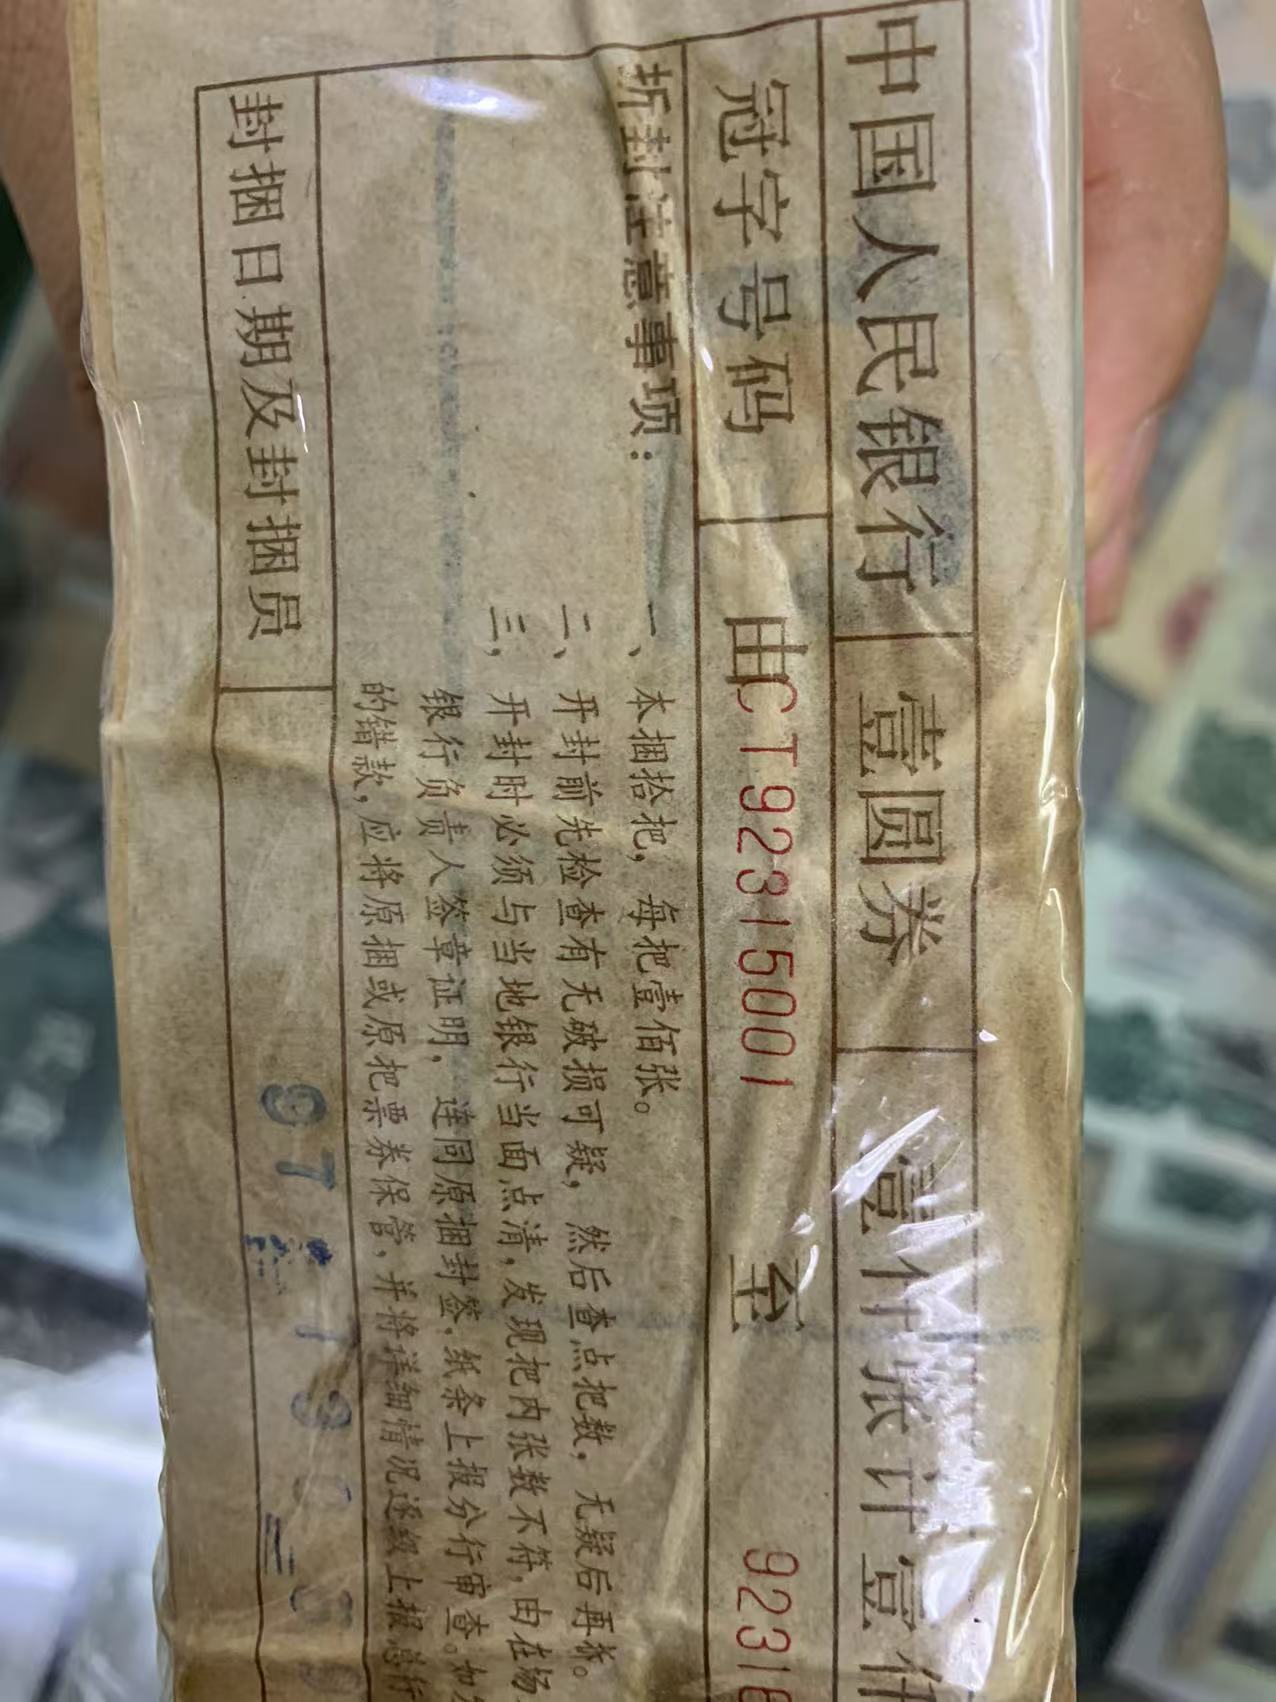 中国人民银行 壹圆券 壹仟张计壹仟
冠字号码 由CT92315001 至 9231
拆封注意事项：
一、本捆拾把，每把壹佰张。
二、开封前先检查有无破损可疑，然后查点把数，无疑后再拆。
三，开封时必须与当地银行当面点清，发现把内张数不符，由在场
银行负责人签章证明，连同原捆封签，纸条上报分行审查。如发
的错款，应将原捆或原把票券保管，并将详细情况逐级上报总行
封捆日期及封捆员 97